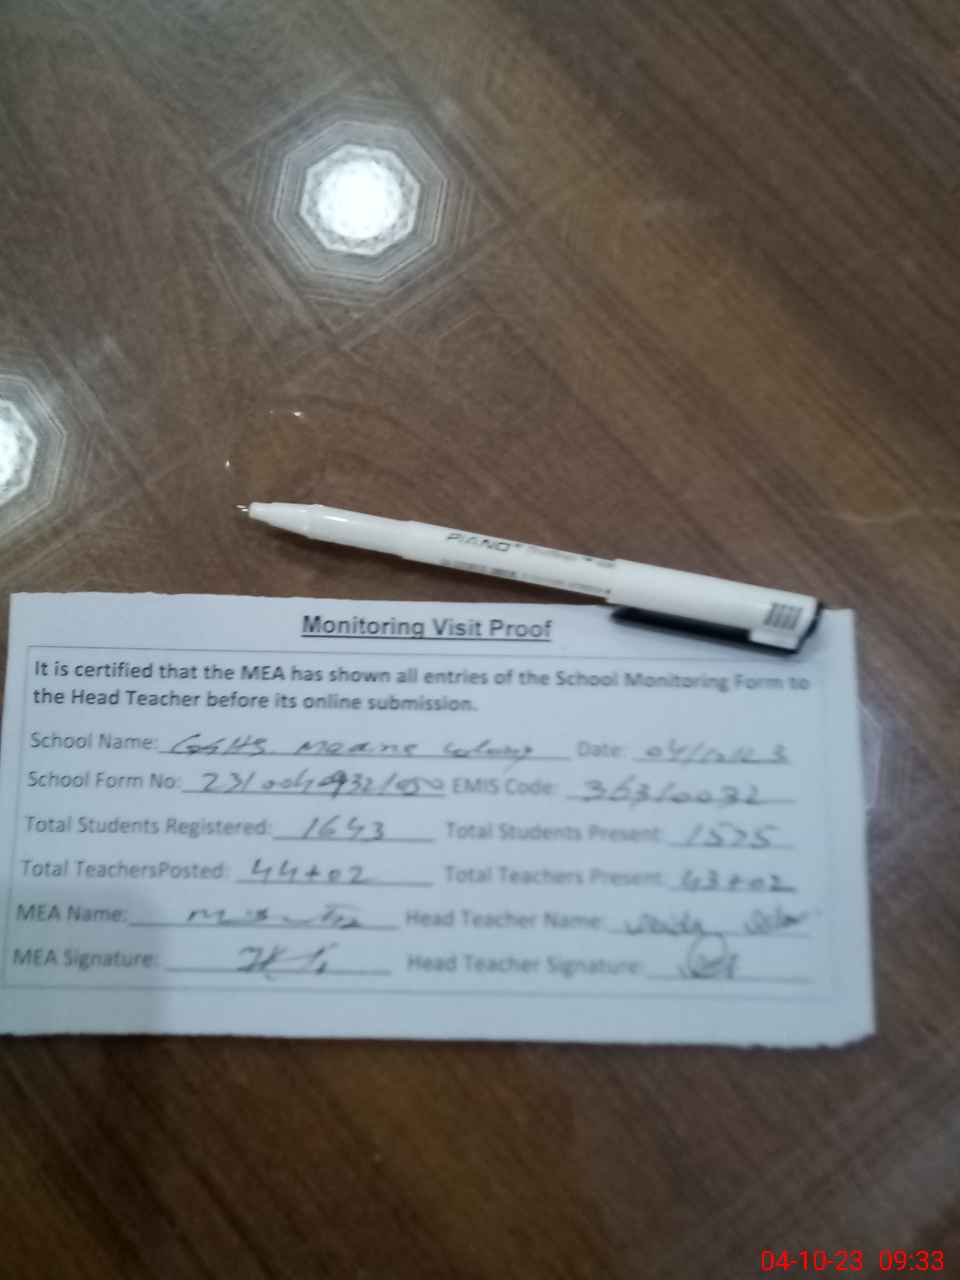 PIANO
Monitoring Visit Proof
It is certified that the MEA has shown all entries of the School Monitoring Form to
the Head Teacher before its online submission.
School Name: GGHS Date:
School Form No: EMIS Code: 36310032
Total Students Registered: 1643 Total Students Present: 1575
Total TeachersPosted: 44+02 Total Teachers Present: 43+02
MEA Name: Head Teacher Name:
MEA Signature: Head Teacher Signature:
04-10-23 09:33